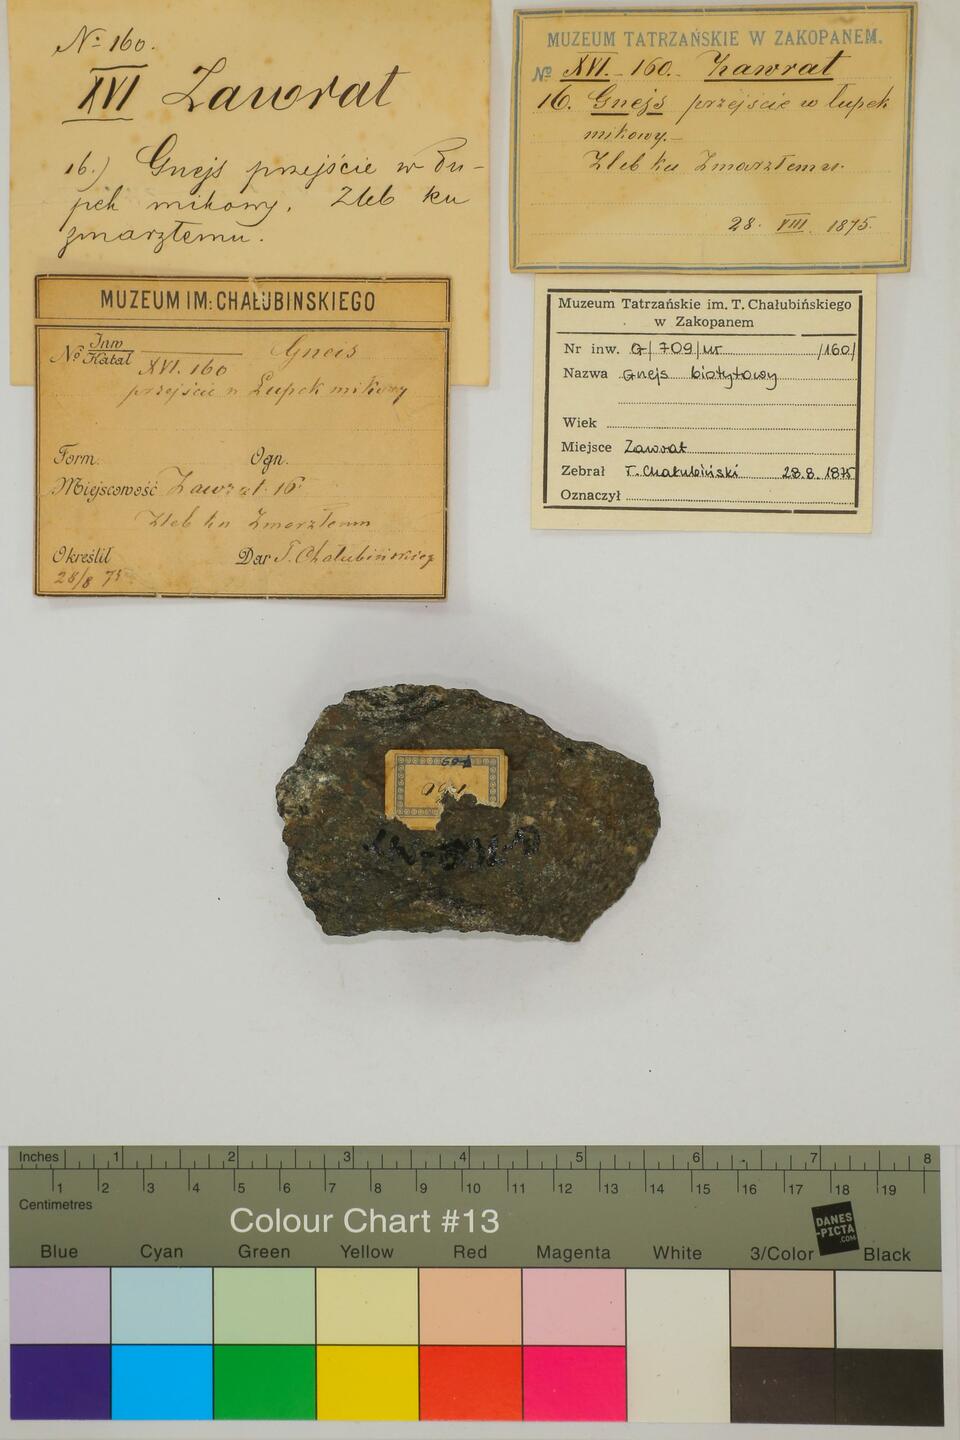 No 160.
XVI Zawrat
16.) Gnejs przejście w łu-
pek mikowy. Zleb ku
zmarzłemu.
MUZEUM TATRZAŃSKIE W ZAKOPANEM.
No XVI. 160. Zawrat
16. Gnejs przejście w łupek
mikowy.
Zleb ku Zmarzłemu.
28. VIII. 1875.
MUZEUM IM: CHAŁUBINSKIEGO
No Inw
Katal
XVI. 160 Gneis
przejście w Łupek mikowy
Form. Ogn.
Miejscowość Zawrat 16
Zleb ku Zmarzłemu
Określił Dar T. Chałubińskiego
28/8 75
Muzeum Tatrzańskie im. T. Chałubińskiego
w Zakopanem
Nr inw. G/709/ /160/
Nazwa Gnejs biotytowy
Wiek
Miejsce Zawrat
Zebrał T. Chałubiński 28.8.1875
Oznaczył
160
Inches 1 2 3 4 5 6 7 8
1 2 3 4 5 6 7 8 9 10 11 12 13 14 15 16 17 18 19
Centimetres
Colour Chart #13
DANES
-PICTA
.COM
Blue Cyan Green Yellow Red Magenta White 3/Color Black